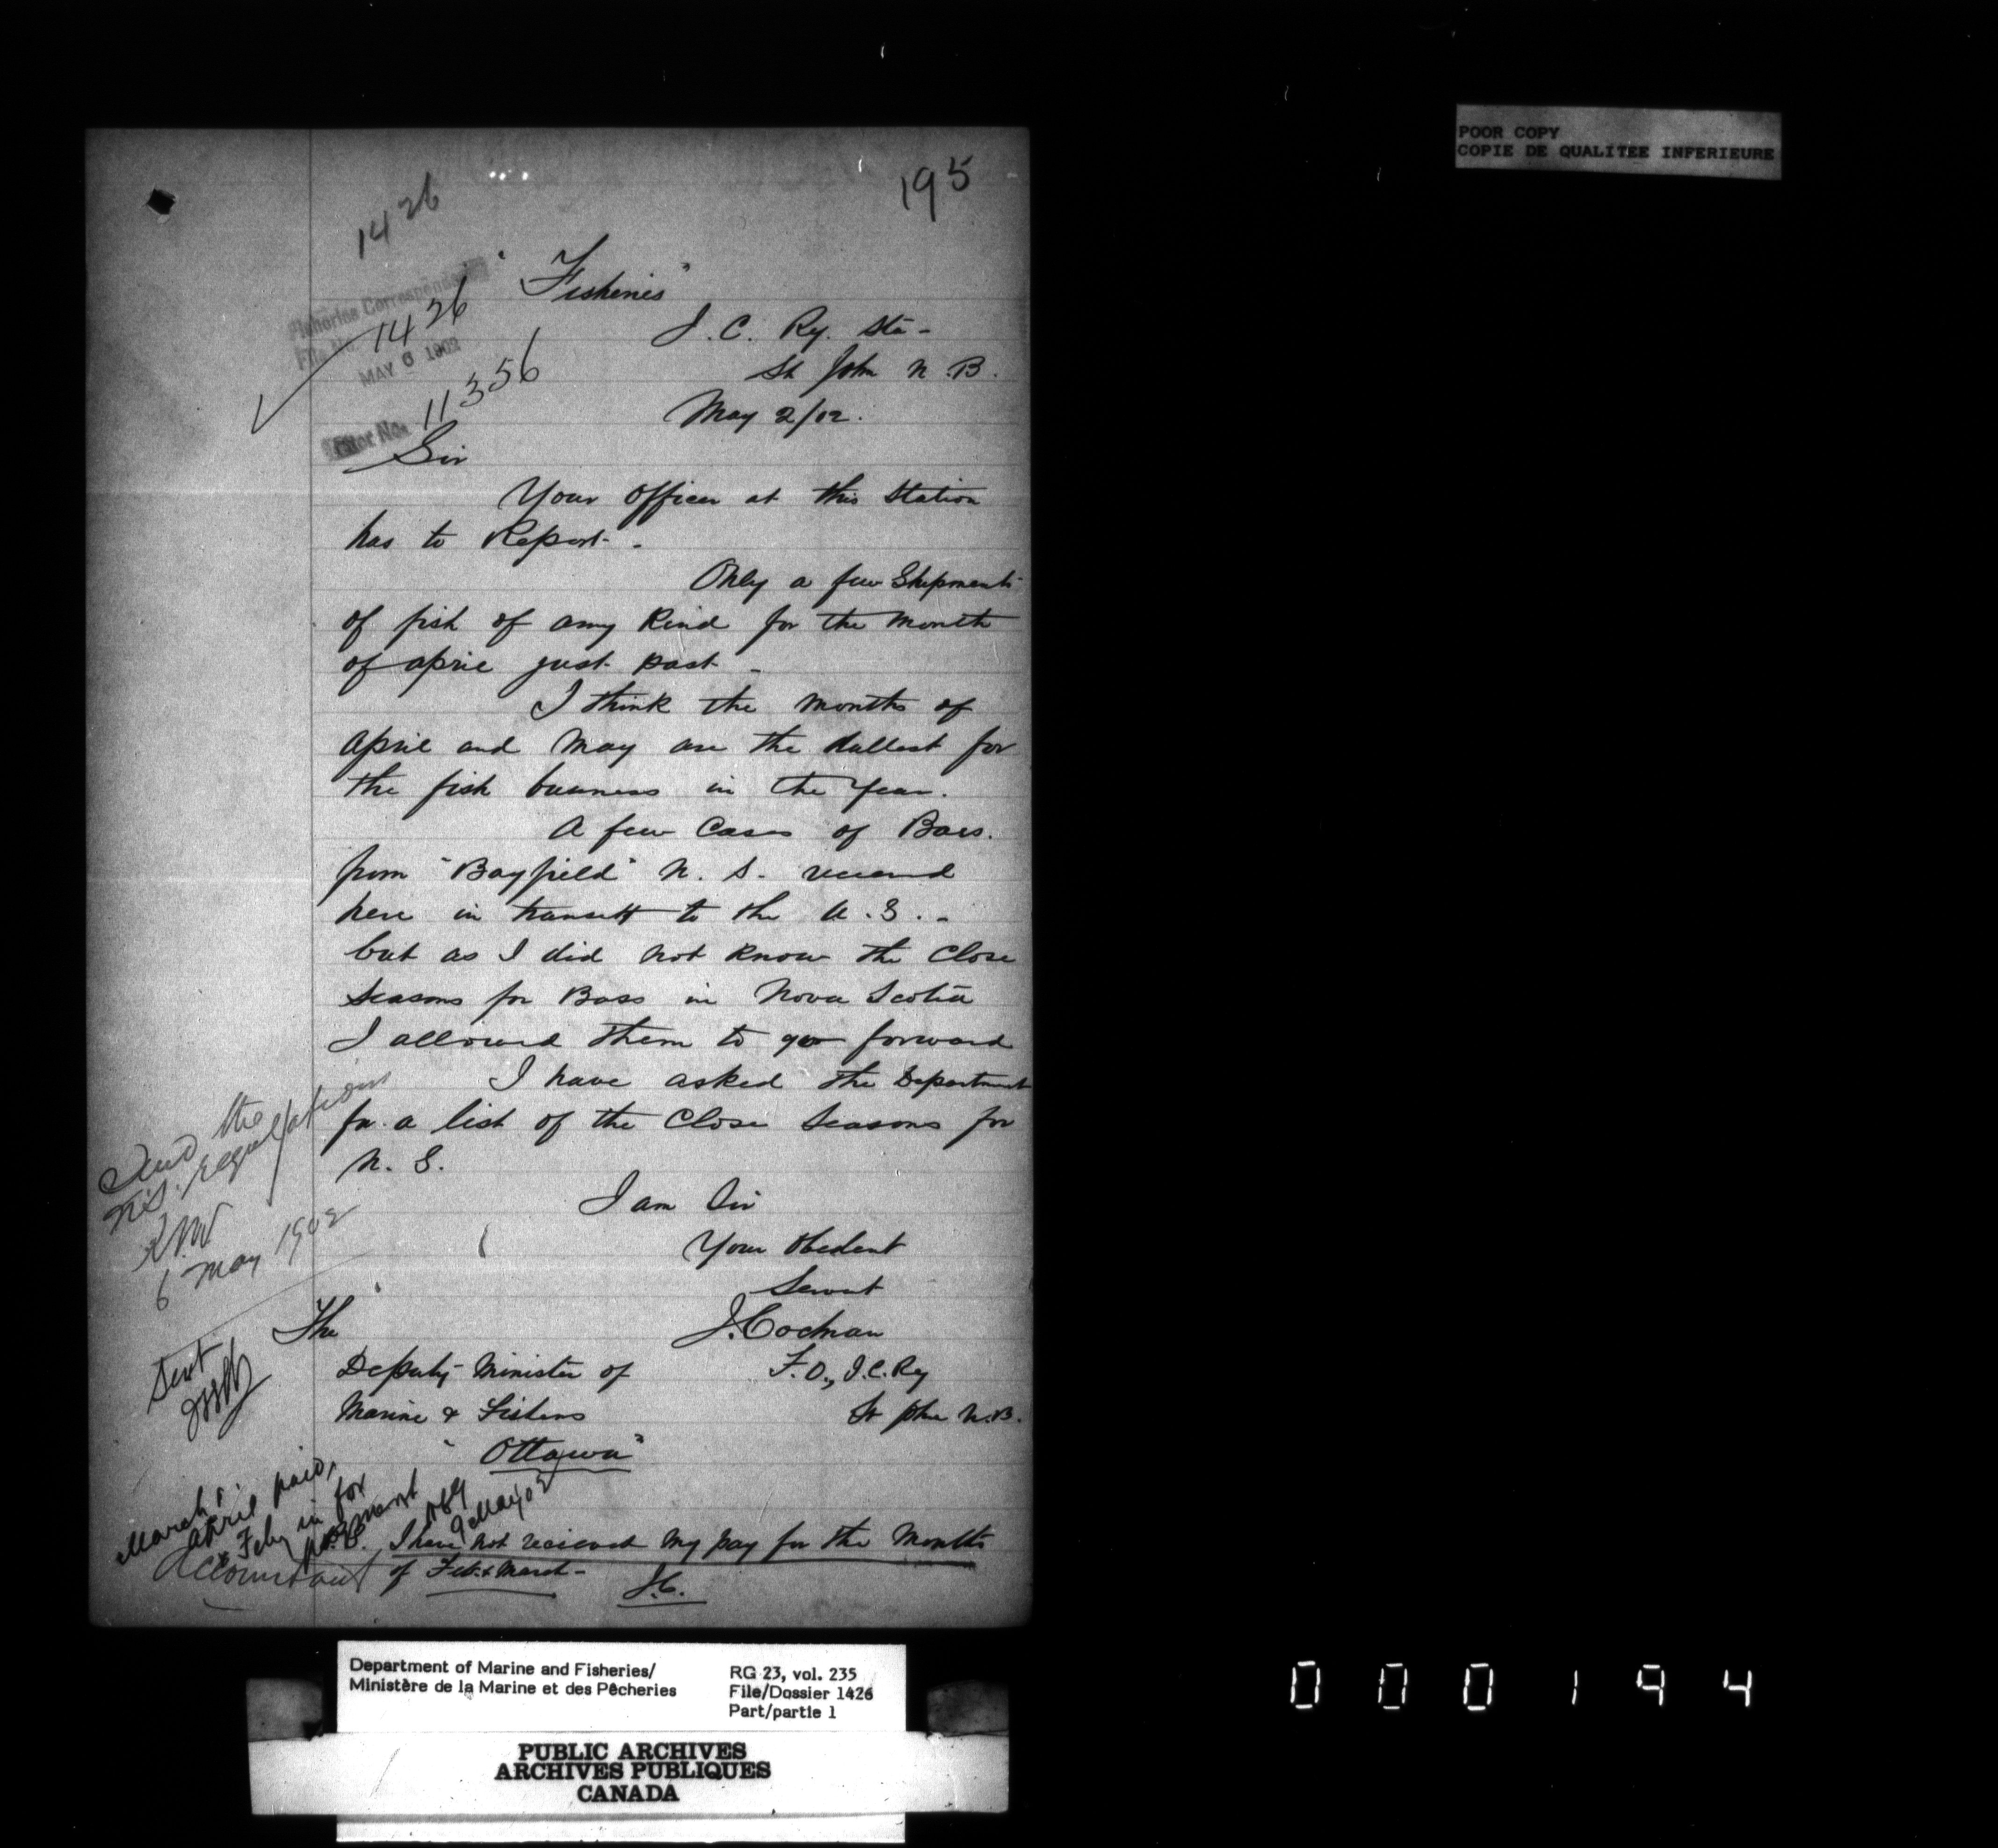 POOR COPY
COPIE DE QUALITEE INFERIEURE
195
1426
"Fisheries"
Fisheries Correspondence
File No. 1426
MAY 6 1902
11356
I. C. Ry. Sta-
St John N.B.
May 2/02.
Sir
Your Officer at this Station
has to Report-.
Only a few Shipments
of fish of any Kind for the Month
of april just past-
I think the months of
april and May are the dullest for
the fish business in the Year.
A few Cases of Bass.
from "Bayfield" N. S. received
here in transett to the U.S.-
but as I did not Know the Close
Seasons for Bass in Nova Scotia
I allowed them to go forward
I have asked the Department
for a list of the Close Seasons for
N. S.
I am Sir
Your Obedent
Servant
J. Cochran
F.O., I.C.Ry
St John N.B.
The
Deputy Minister of
Marine & Fisheries
"Ottawa"
Send the
N.S. regulations
6 May 1902
Sent
March &
April paid,
Feby in for
payment
9 May 02
Accountant
I have not recieved my pay for the Months
of Feb. & March-
J.C.
Department of Marine and Fisheries/
Ministère de la Marine et des Pêcheries
RG 23, vol. 235
File/Dossier 1426
Part/partie 1
PUBLIC ARCHIVES
ARCHIVES PUBLIQUES
CANADA
000194